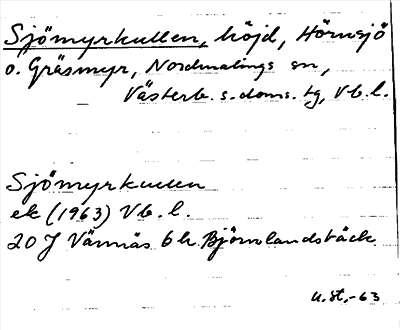 Sjömyrkullen, höjd, Hörnsjö
o. Gräsmyr, Nordmalings sn,
Västerb. s. doms. tg, Vb. l.
Sjömyrkullen
ek (1963) Vb. l.
20 J Vännäs 6 h Björnlandsbäck
u. st, -63